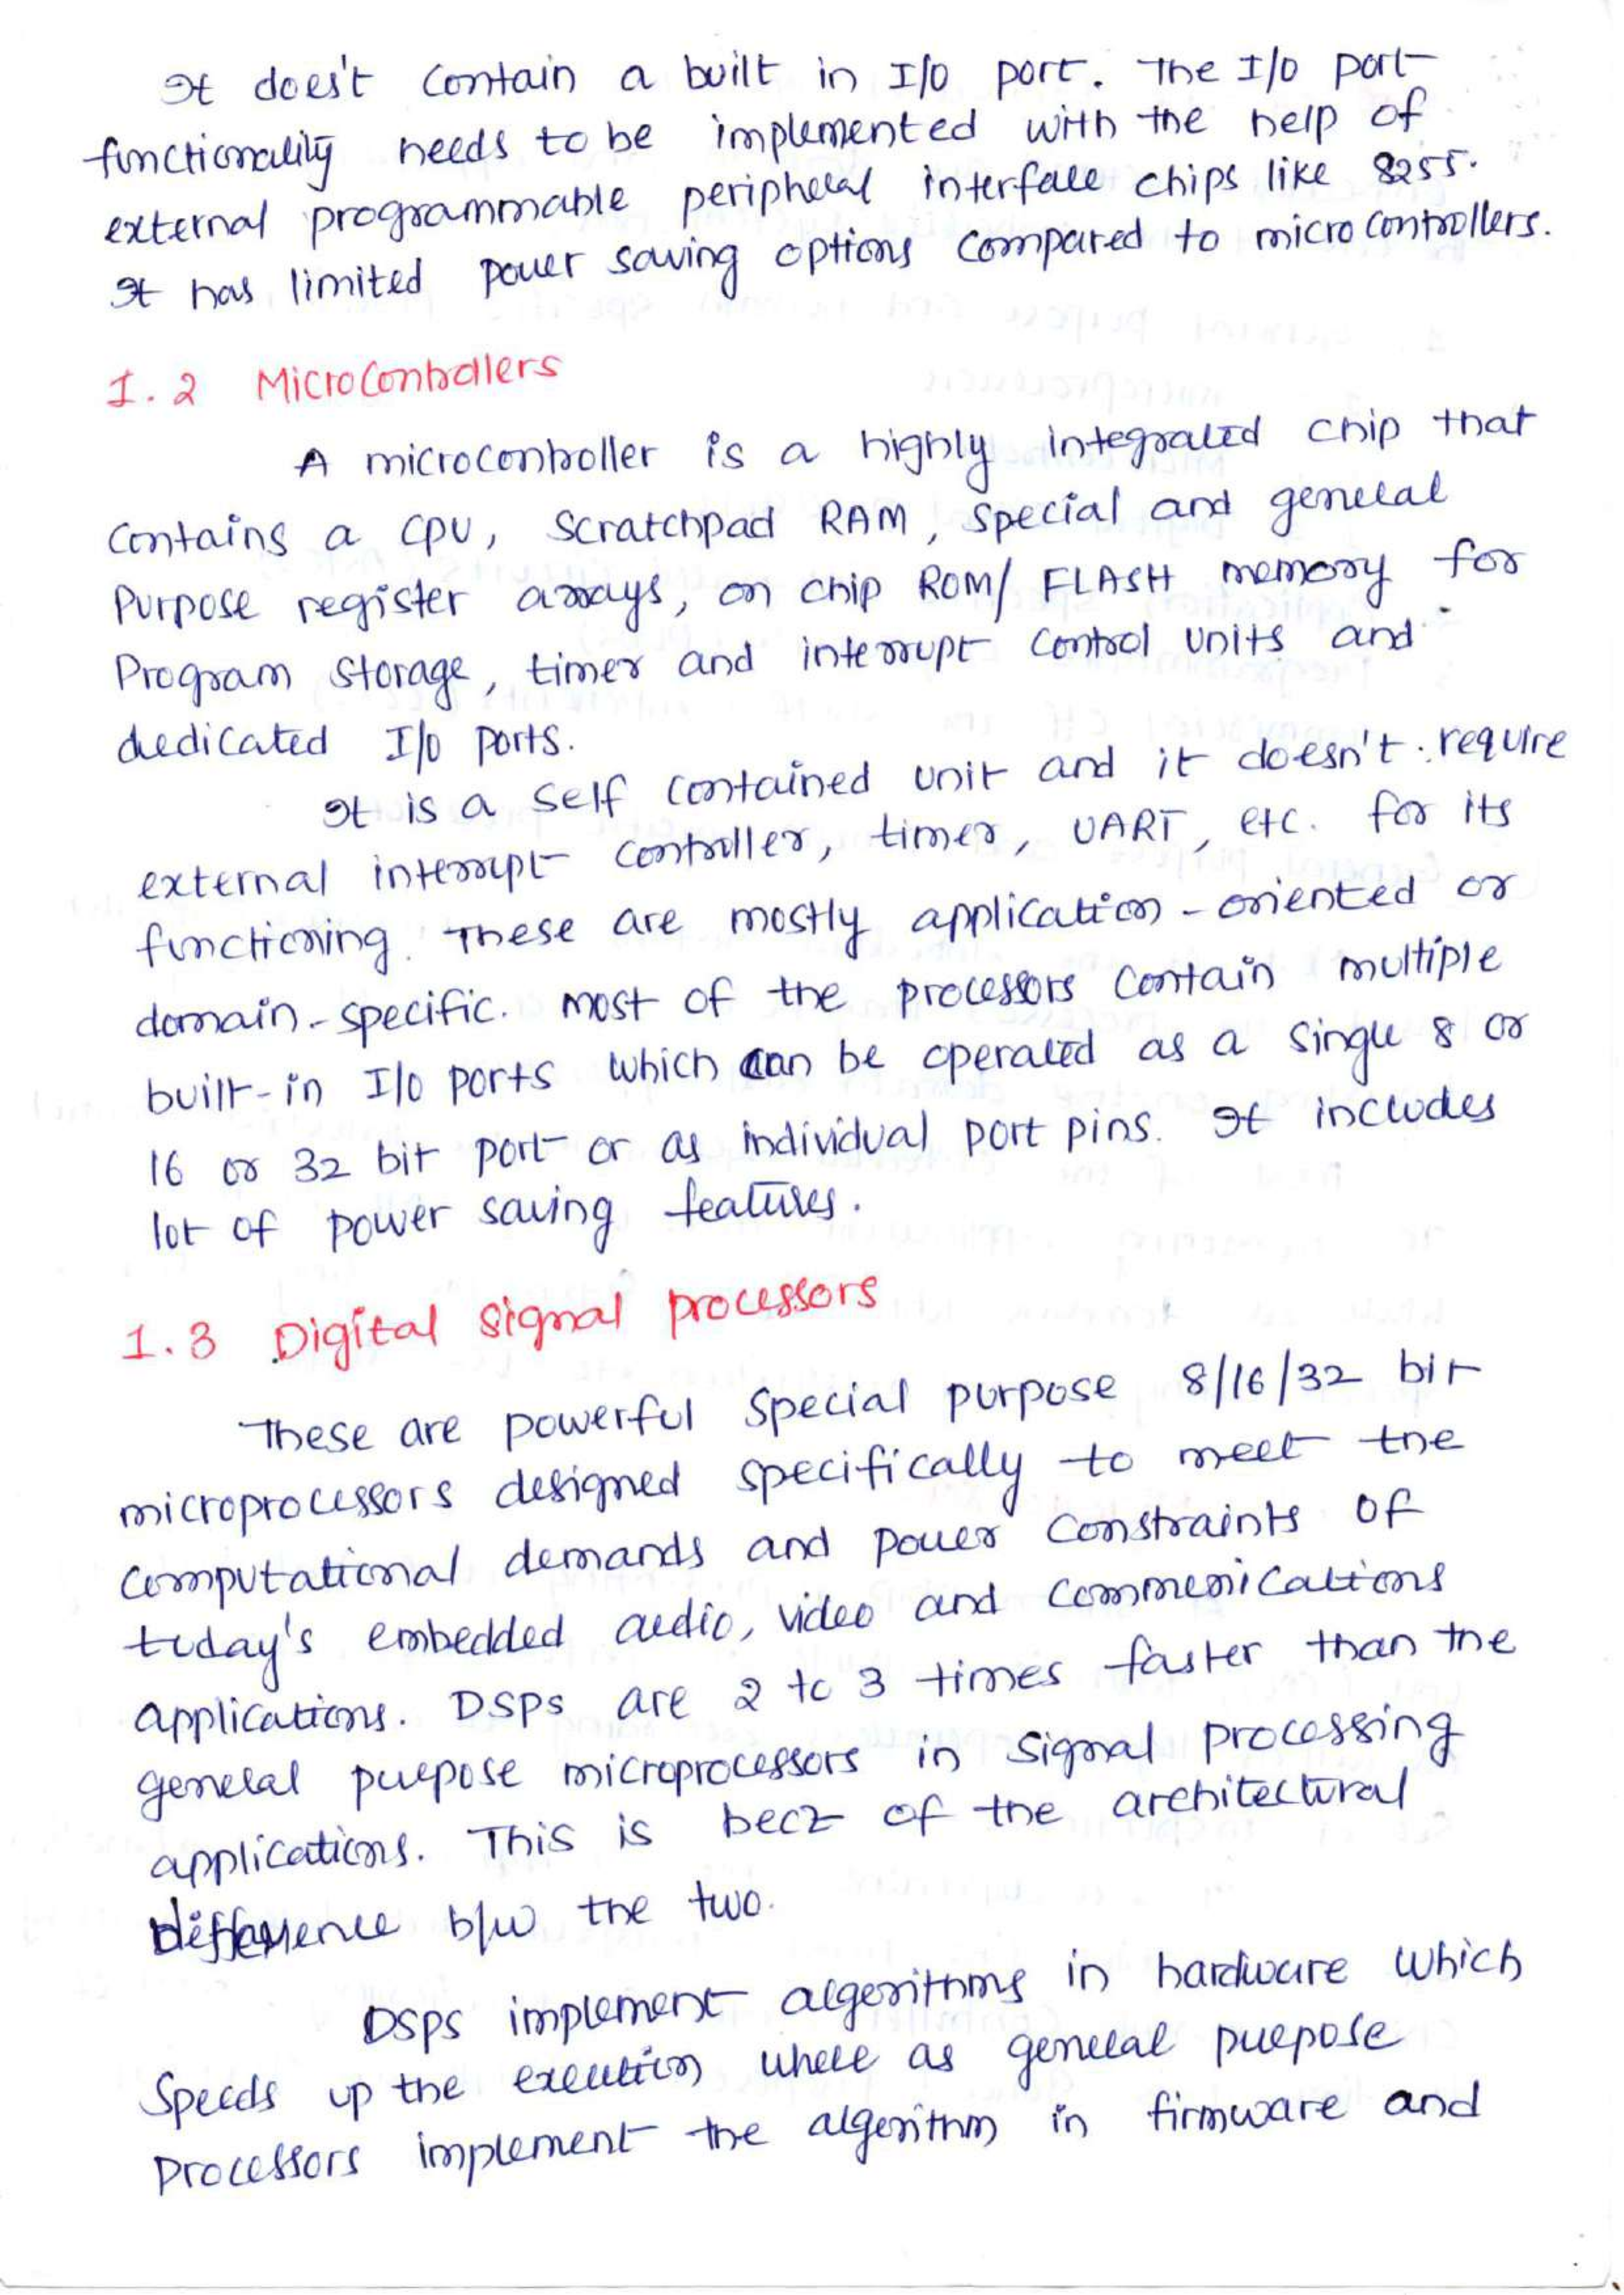 It does't contain a built in I/O port. The I/O port
functionality needs to be implemented with the help of
external programmable peripheral interface chips like 8255.
It has limited power saving options compared to microcontrollers.
1.2 Microcontrollers
A microcontroller is a highly integrated chip that
contains a CPU, Scratchpad RAM, special and general
Purpose register arrays, on chip ROM/ FLASH memory for
Program storage, timer and interrupt control units and
dedicated I/O ports.
It is a self contained unit and it doesn't require
external interrupt controller, timer, UART, etc. for its
functioning. These are mostly application-oriented or
domain-specific. most of the processors contain multiple
built-in I/O ports which can be operated as a single 8 or
16 or 32 bit port or as individual port pins. It includes
lot of power saving features.
1.3 Digital signal processors
These are powerful special purpose 8/16/32 bit
microprocessors designed specifically to meet the
computational demands and power constraints of
today's embedded audio, video and communications
applications. DSPs are 2 to 3 times faster than the
general purpose microprocessors in signal processing
applications. This is becz of the architectural
difference b/w the two.
DSPs implement algorithms in hardware which
speeds up the execution where as general purpose
processors implement the algorithm in firmware and